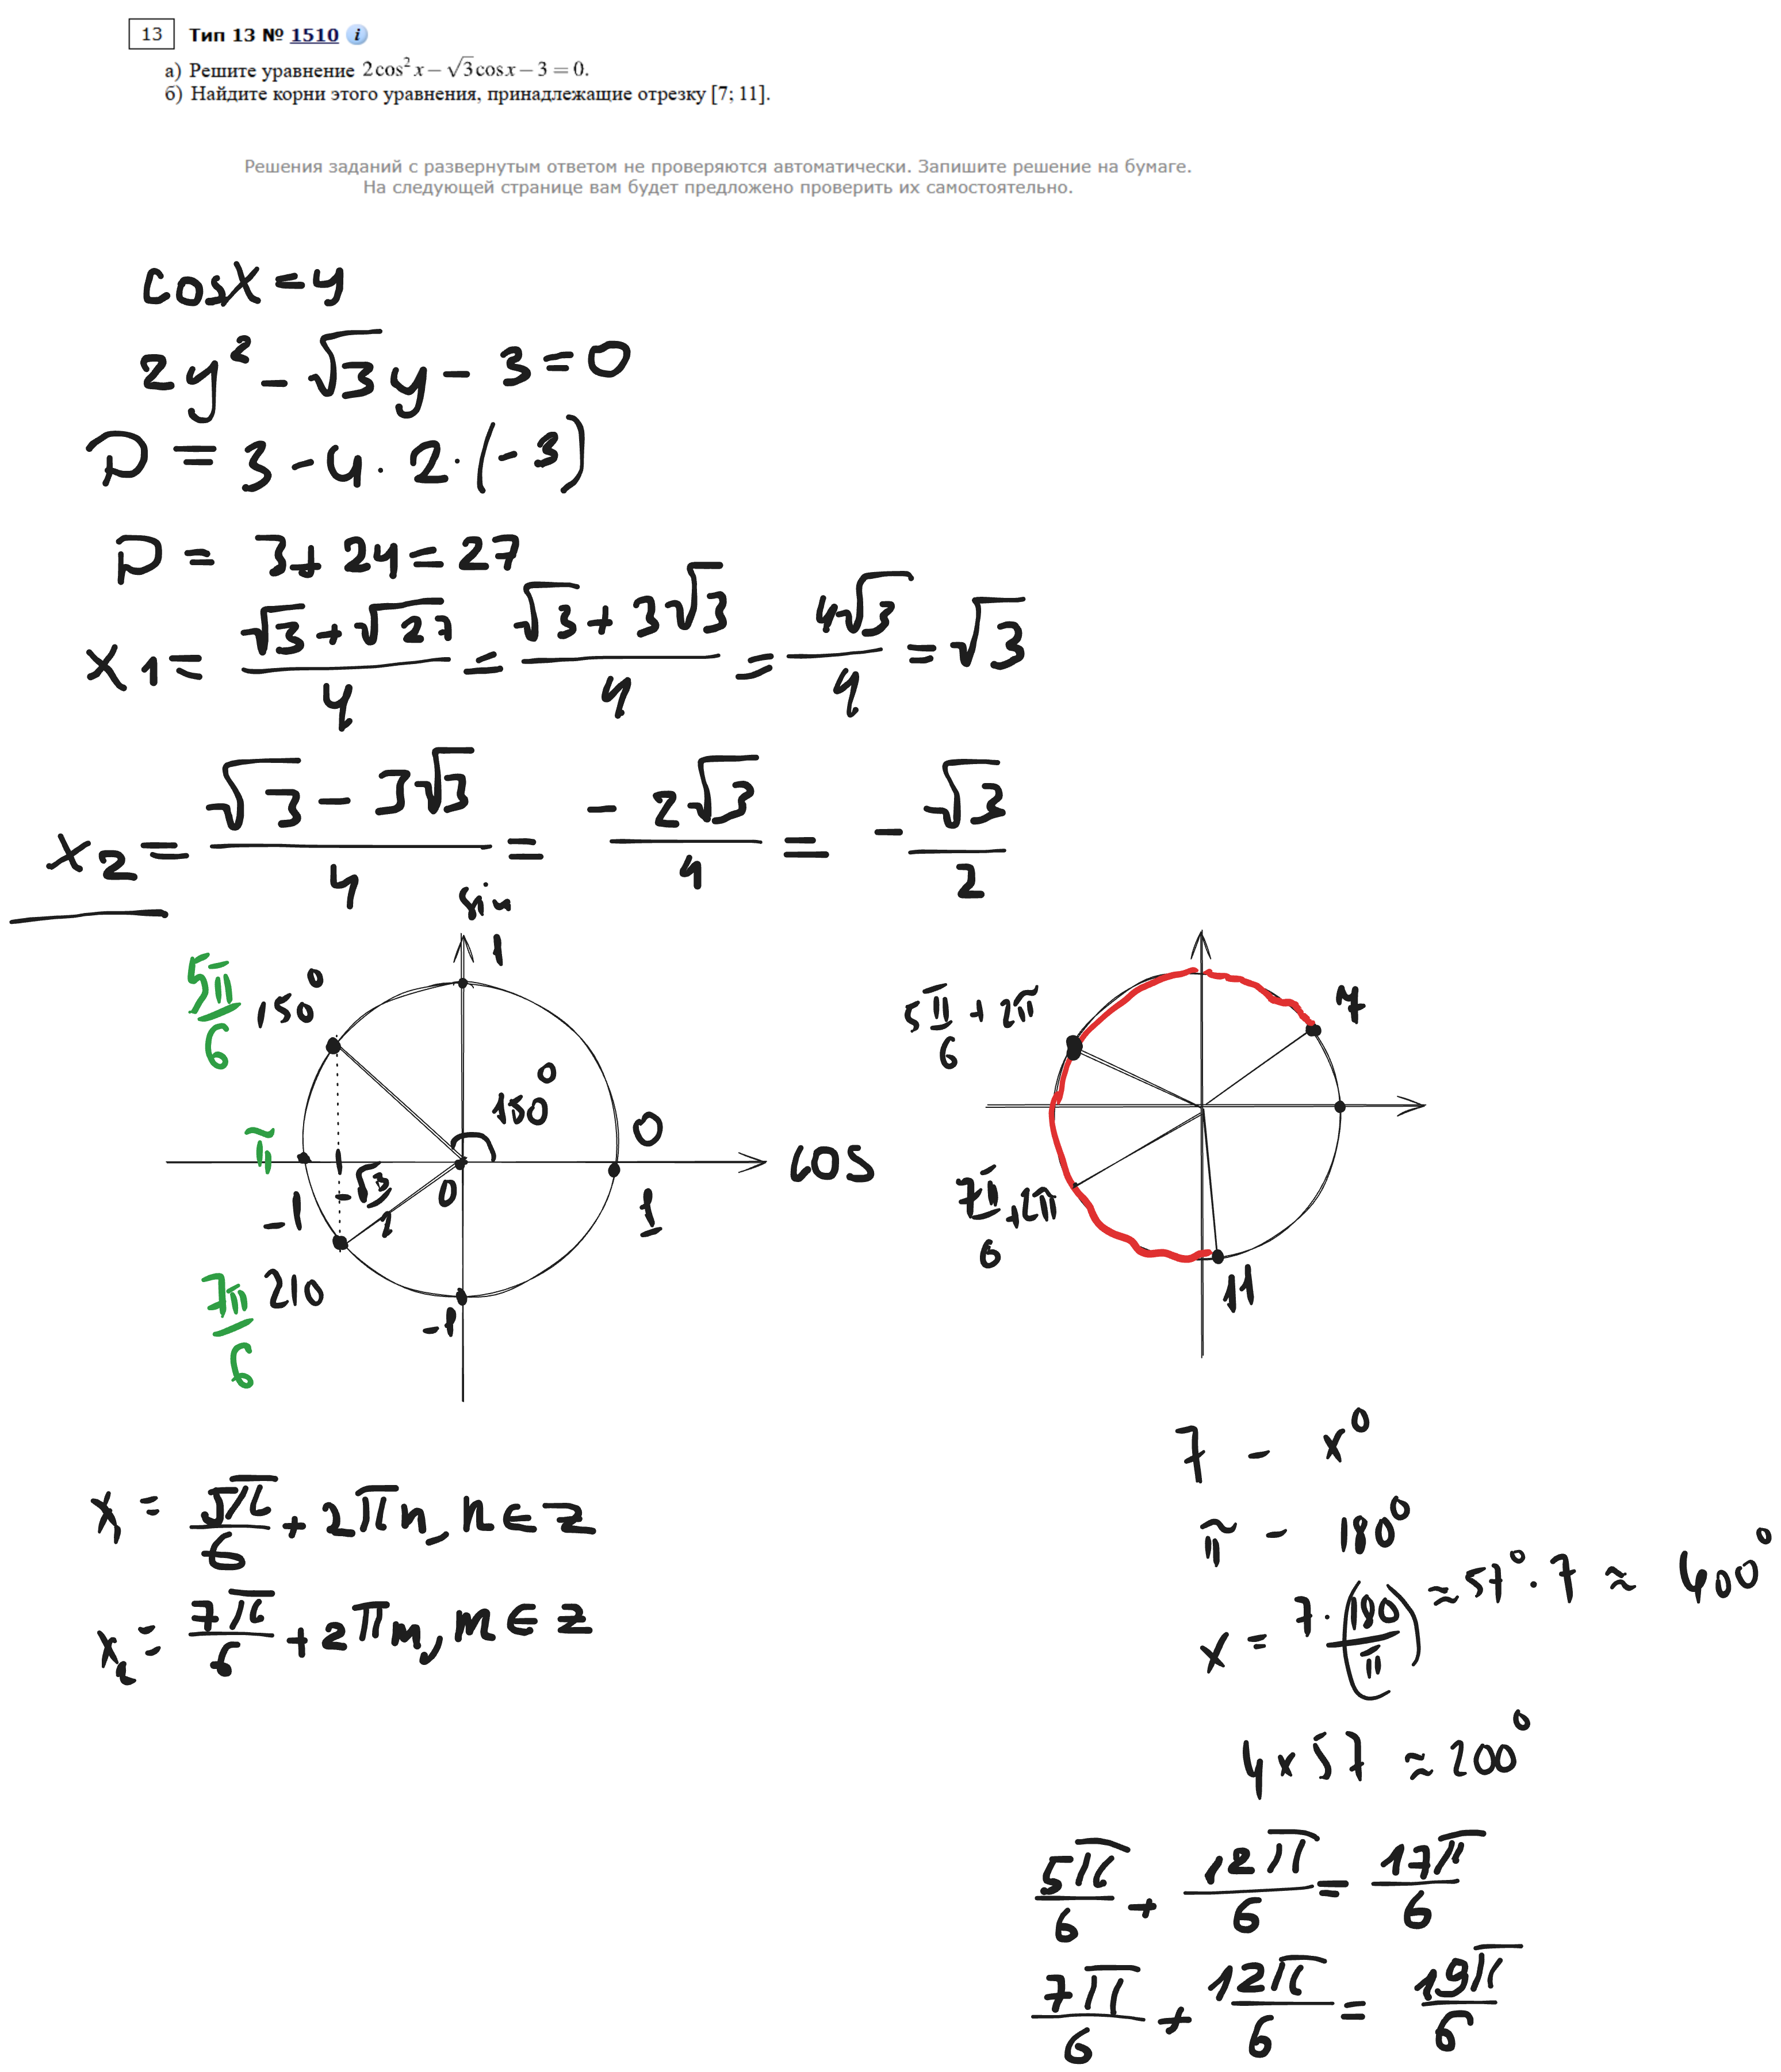 13 Тип 13 № 1510 i
а) Решите уравнение 2cos²x − √3cosx − 3 = 0.
б) Найдите корни этого уравнения, принадлежащие отрезку [7; 11].
Решения заданий с развернутым ответом не проверяются автоматически. Запишите решение на бумаге.
На следующей странице вам будет предложено проверить их самостоятельно.
cosx = y
2y² − √3y − 3 = 0
D = 3 − 4 · 2 · (−3)
D = 3 + 24 = 27
x1 = (√3 + √27)/4 = (√3 + 3√3)/4 = 4√3/4 = √3
x2 = (√3 − 3√3)/4 = −2√3/4 = −√3/2
sin
1
5π/6
150°
150°
π
0
cos
−1
−√3/2
0
1
7π/6
210
−1
5π/6 + 2π
7
7π/6 + 2π
11
x1 = 5π/6 + 2πn, n ∈ z
x2 = 7π/6 + 2πm, m ∈ z
7 − x°
π − 180°
x = 7 · (180/π) ≈ 57° · 7 ≈ 400°
4 x 57 ≈ 200°
5π/6 + 12π/6 = 17π/6
7π/6 + 12π/6 = 19π/6